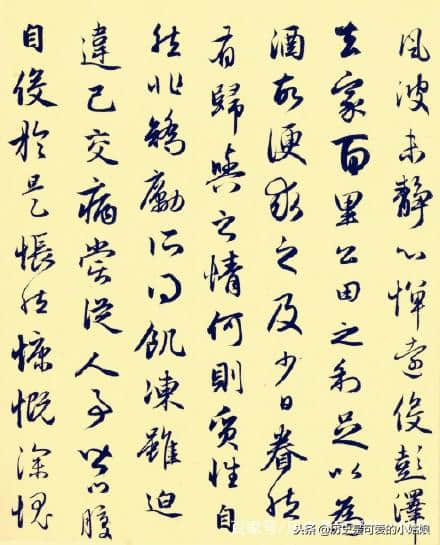 風波未靜心憚遠役彭澤
去家百里公田之利足以為
酒故便求之及少日眷然
有歸與之情何則質性自
然非矯勵所得飢凍雖迫
違己交病嘗從人事皆口腹
自役於是悵然慷慨深愧
头条 @历史最可爱的小姑娘